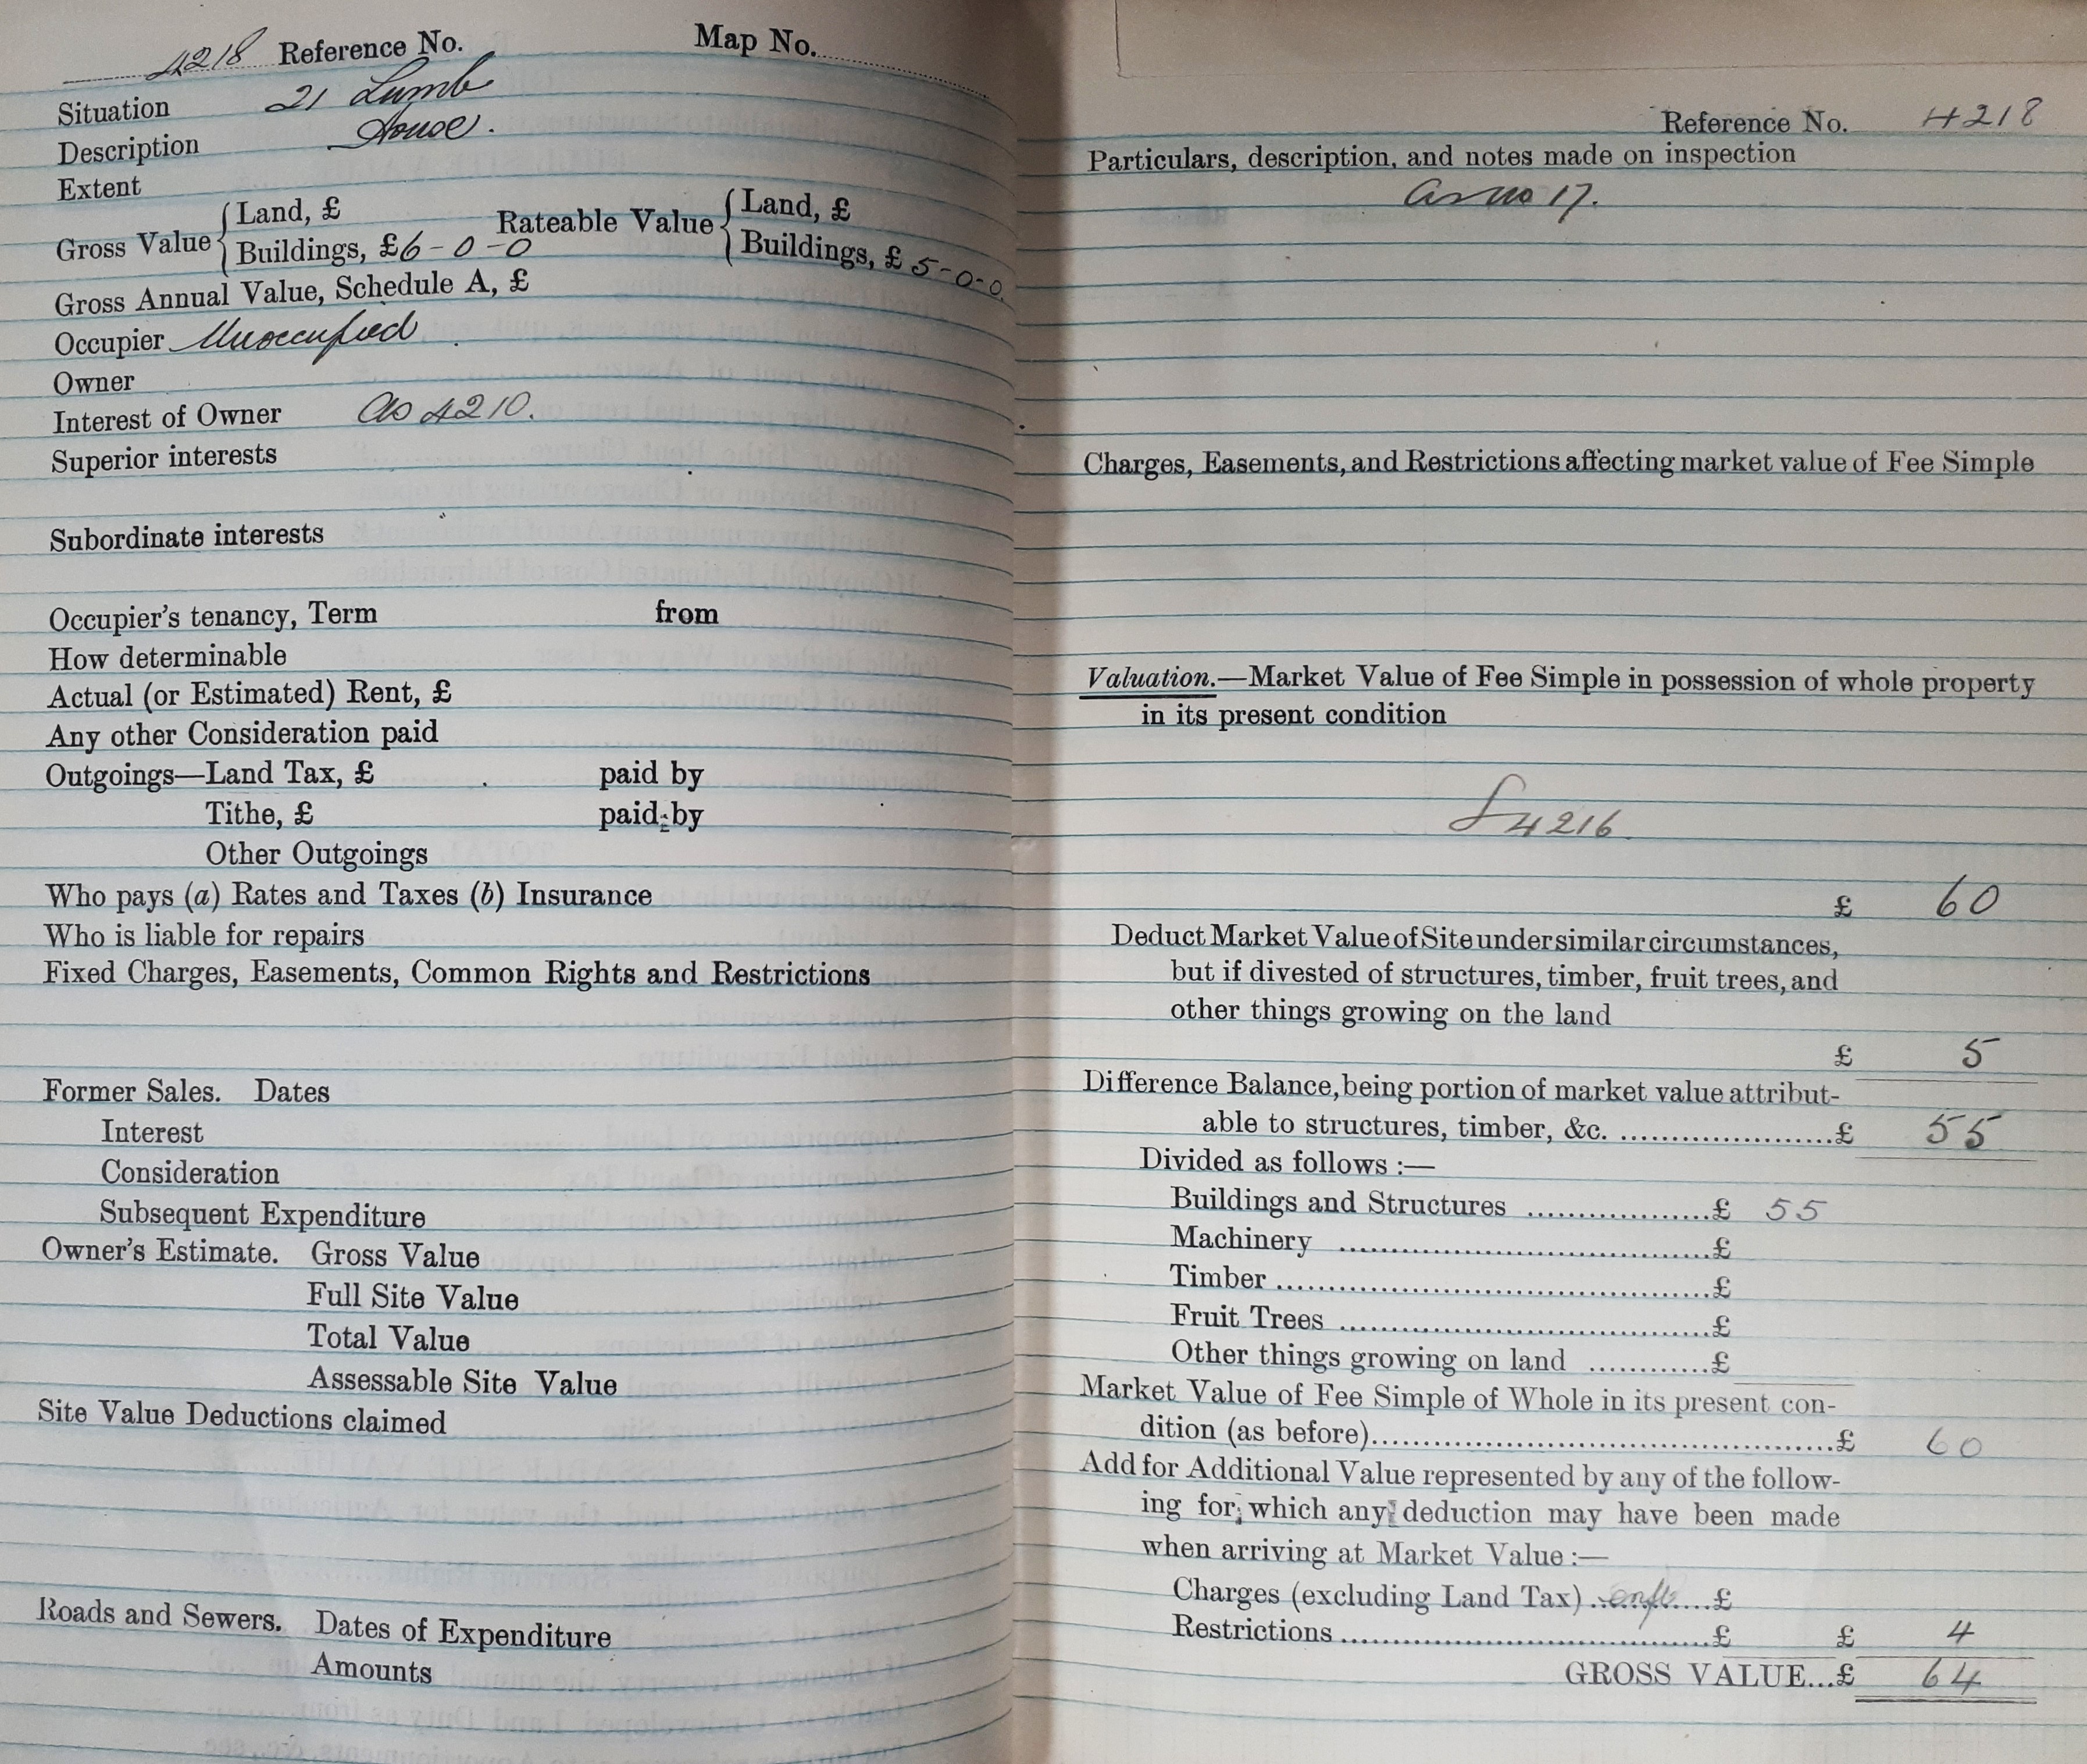 4218 Reference No. Map No.
Situation 21 Lumb
Description House.
Extent
Gross Value { Land, £ Rateable Value { Land, £
Buildings, £6-0-0 Buildings, £5-0-0.
Gross Annual Value, Schedule A, £
Occupier Unoccupied
Owner
Interest of Owner as 4210.
Superior interests
Subordinate interests
Occupier's tenancy, Term from
How determinable
Actual (or Estimated) Rent, £
Any other Consideration paid
Outgoings—Land Tax, £ paid by
Tithe, £ paid by
Other Outgoings
Who pays (a) Rates and Taxes (b) Insurance
Who is liable for repairs
Fixed Charges, Easements, Common Rights and Restrictions
Former Sales. Dates
Interest
Consideration
Subsequent Expenditure
Owner's Estimate. Gross Value
Full Site Value
Total Value
Assessable Site Value
Site Value Deductions claimed
Roads and Sewers. Dates of Expenditure
Amounts
Reference No. 4218
Particulars, description, and notes made on inspection
as no 17.
Charges, Easements, and Restrictions affecting market value of Fee Simple
Valuation.—Market Value of Fee Simple in possession of whole property
in its present condition
£4216
£ 60
Deduct Market Value of Site under similar circumstances,
but if divested of structures, timber, fruit trees, and
other things growing on the land
£ 5
Difference Balance, being portion of market value attribut-
able to structures, timber, &c. ....................£ 55
Divided as follows :—
Buildings and Structures ..................£ 55
Machinery ....................................£
Timber ..........................................£
Fruit Trees ....................................£
Other things growing on land ............£
Market Value of Fee Simple of Whole in its present con-
dition (as before)............................................£ 60
Add for Additional Value represented by any of the follow-
ing for which any deduction may have been made
when arriving at Market Value :—
Charges (excluding Land Tax) ...enft......£
Restrictions....................................£ £ 4
GROSS VALUE...£ 64